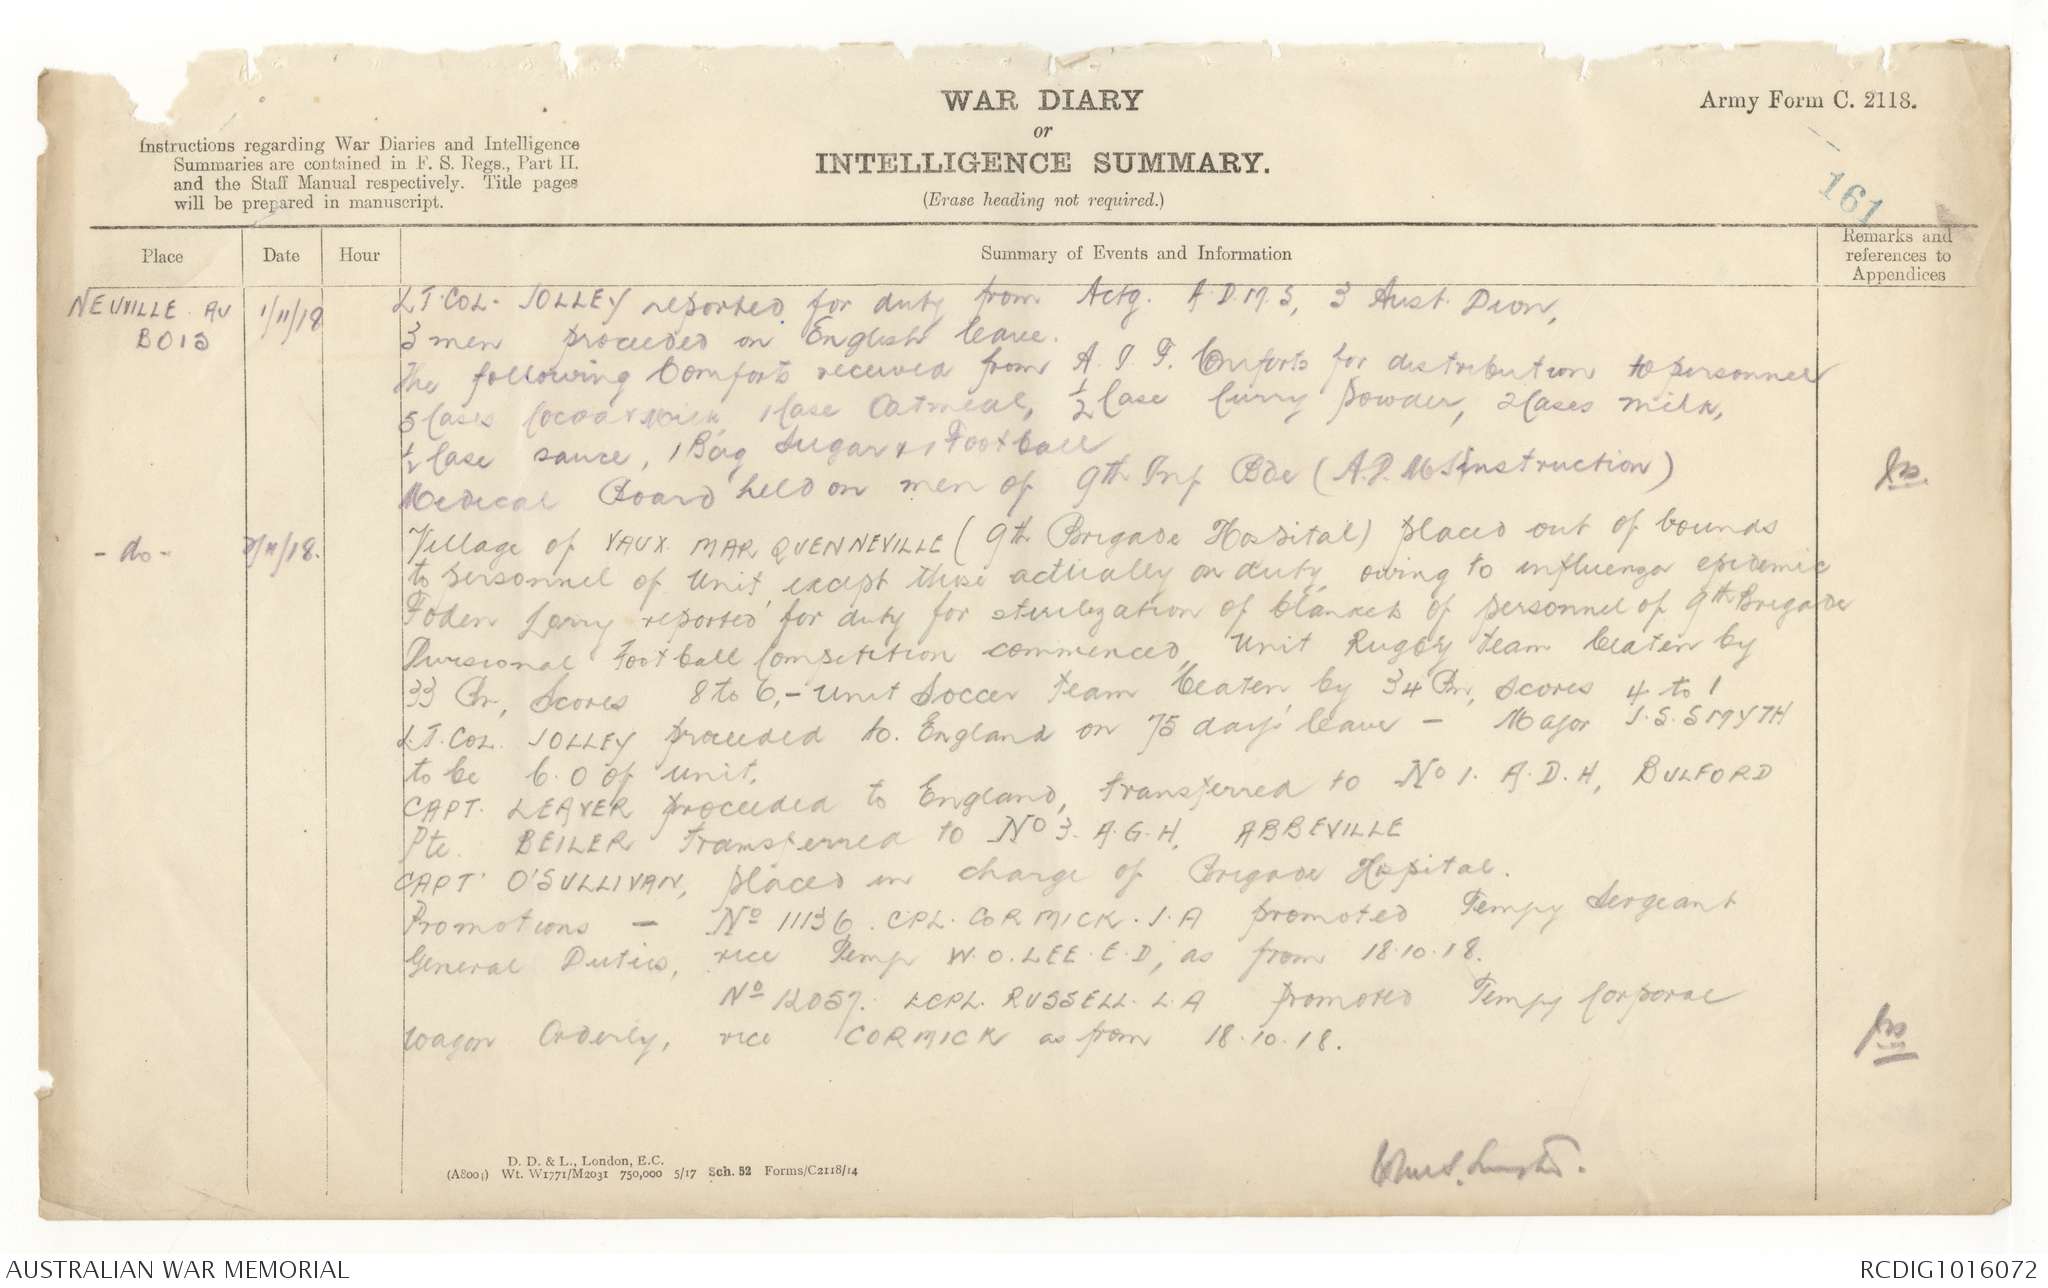 WAR DIARY
or
INTELLIGENCE SUMMARY.
(Erase heading not required.)
Army Form C. 2118.
Instructions regarding War Diaries and Intelligence
Summaries are contained in F. S. Regs., Part II.
and the Staff Manual respectively. Title pages
will be prepared in manuscript.
161
Place Date Hour Summary of Events and Information Remarks and references to Appendices
NEUVILLE AU BOIS 1/11/18 LT. COL. JOLLEY reported for duty from Actg. A.D.M.S, 3 Aust. Divn,
3 men proceeded on English leave.
The following Comforts received from A.I.F. Comforts for distribution to personnel
5 Cases Cocoa & Milk, 1 Case Oatmeal, ½ Case Curry Powder, 2 Cases milk,
½ Case sauce, 1 Bag Sugar & 1 Football
Medical Board held on men of 9th Inf Bde (A.D.M.S instruction)
- do - 2/11/18. Village of VAUX MARQUENNEVILLE (9th Brigade Hospital) placed out of bounds
to personnel of Unit, except those actually on duty, owing to influenza epidemic
Foden Lorry reported for duty for sterilization of blankets of personnel of 9th Brigade
Divisional Football Competition commenced, Unit Rugby team beaten by
33 Bn, Scores 8 to 6, - Unit Soccer team beaten by 34 Bn, scores 4 to 1
LT. COL. JOLLEY proceeded to England on 75 days leave - Major J.S. SMYTH
to be C.O of Unit.
CAPT. LEAVER proceeded to England, transferred to No 1. A.D.H, BULFORD
Pte. BEILER transferred to No 3. A.G.H, ABBEVILLE
CAPT O'SULLIVAN, placed in charge of Brigade Hospital.
Promotions - No 11136 CPL. CORMICK. J.A promoted Tempy Sergeant
General Duties, vice Temp W.O. LEE. E.D, as from 18.10.18.
No 12057. LCPL. RUSSELL. L.A promoted Tempy Corporal
Wagon Orderly, vice CORMICK as from 18.10.18.
D. D. & L., London, E.C.
(A8004) Wt. W1771/M2031 750,000 5/17 Sch. 52 Forms/C2118/14
AUSTRALIAN WAR MEMORIAL
RCDIG1016072